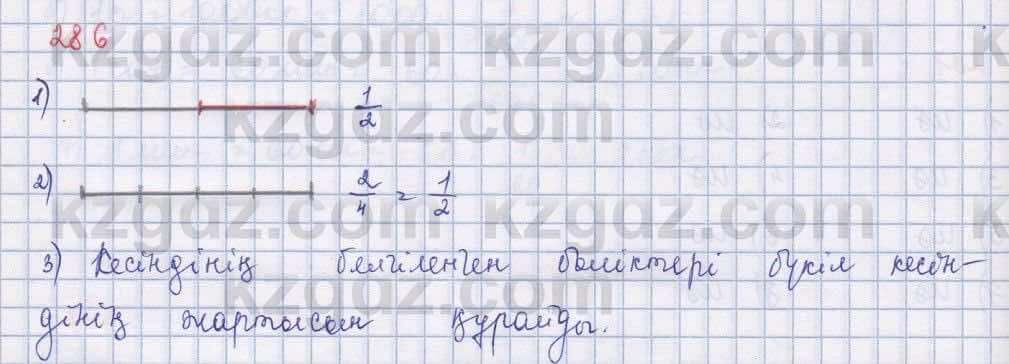 286
kzgdz.com kzgdz.com
1) 1/2
kzgdz.com kzgdz.com
2) 2/4 = 1/2
kzgdz.com kzgdz.com
3) Кесіндінің белгіленген бөліктері бүкіл кесін-
дінің жартысын құрайды.
kzgdz.com kzgdz.com